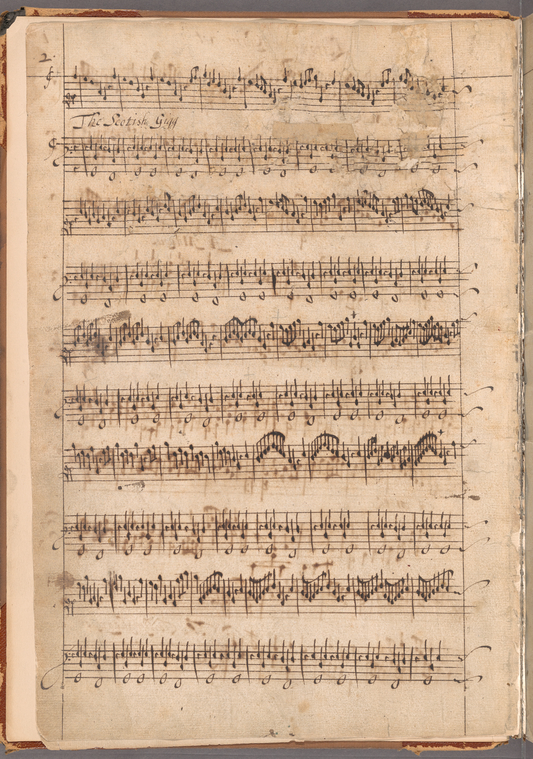 2
The Scotish Gigg